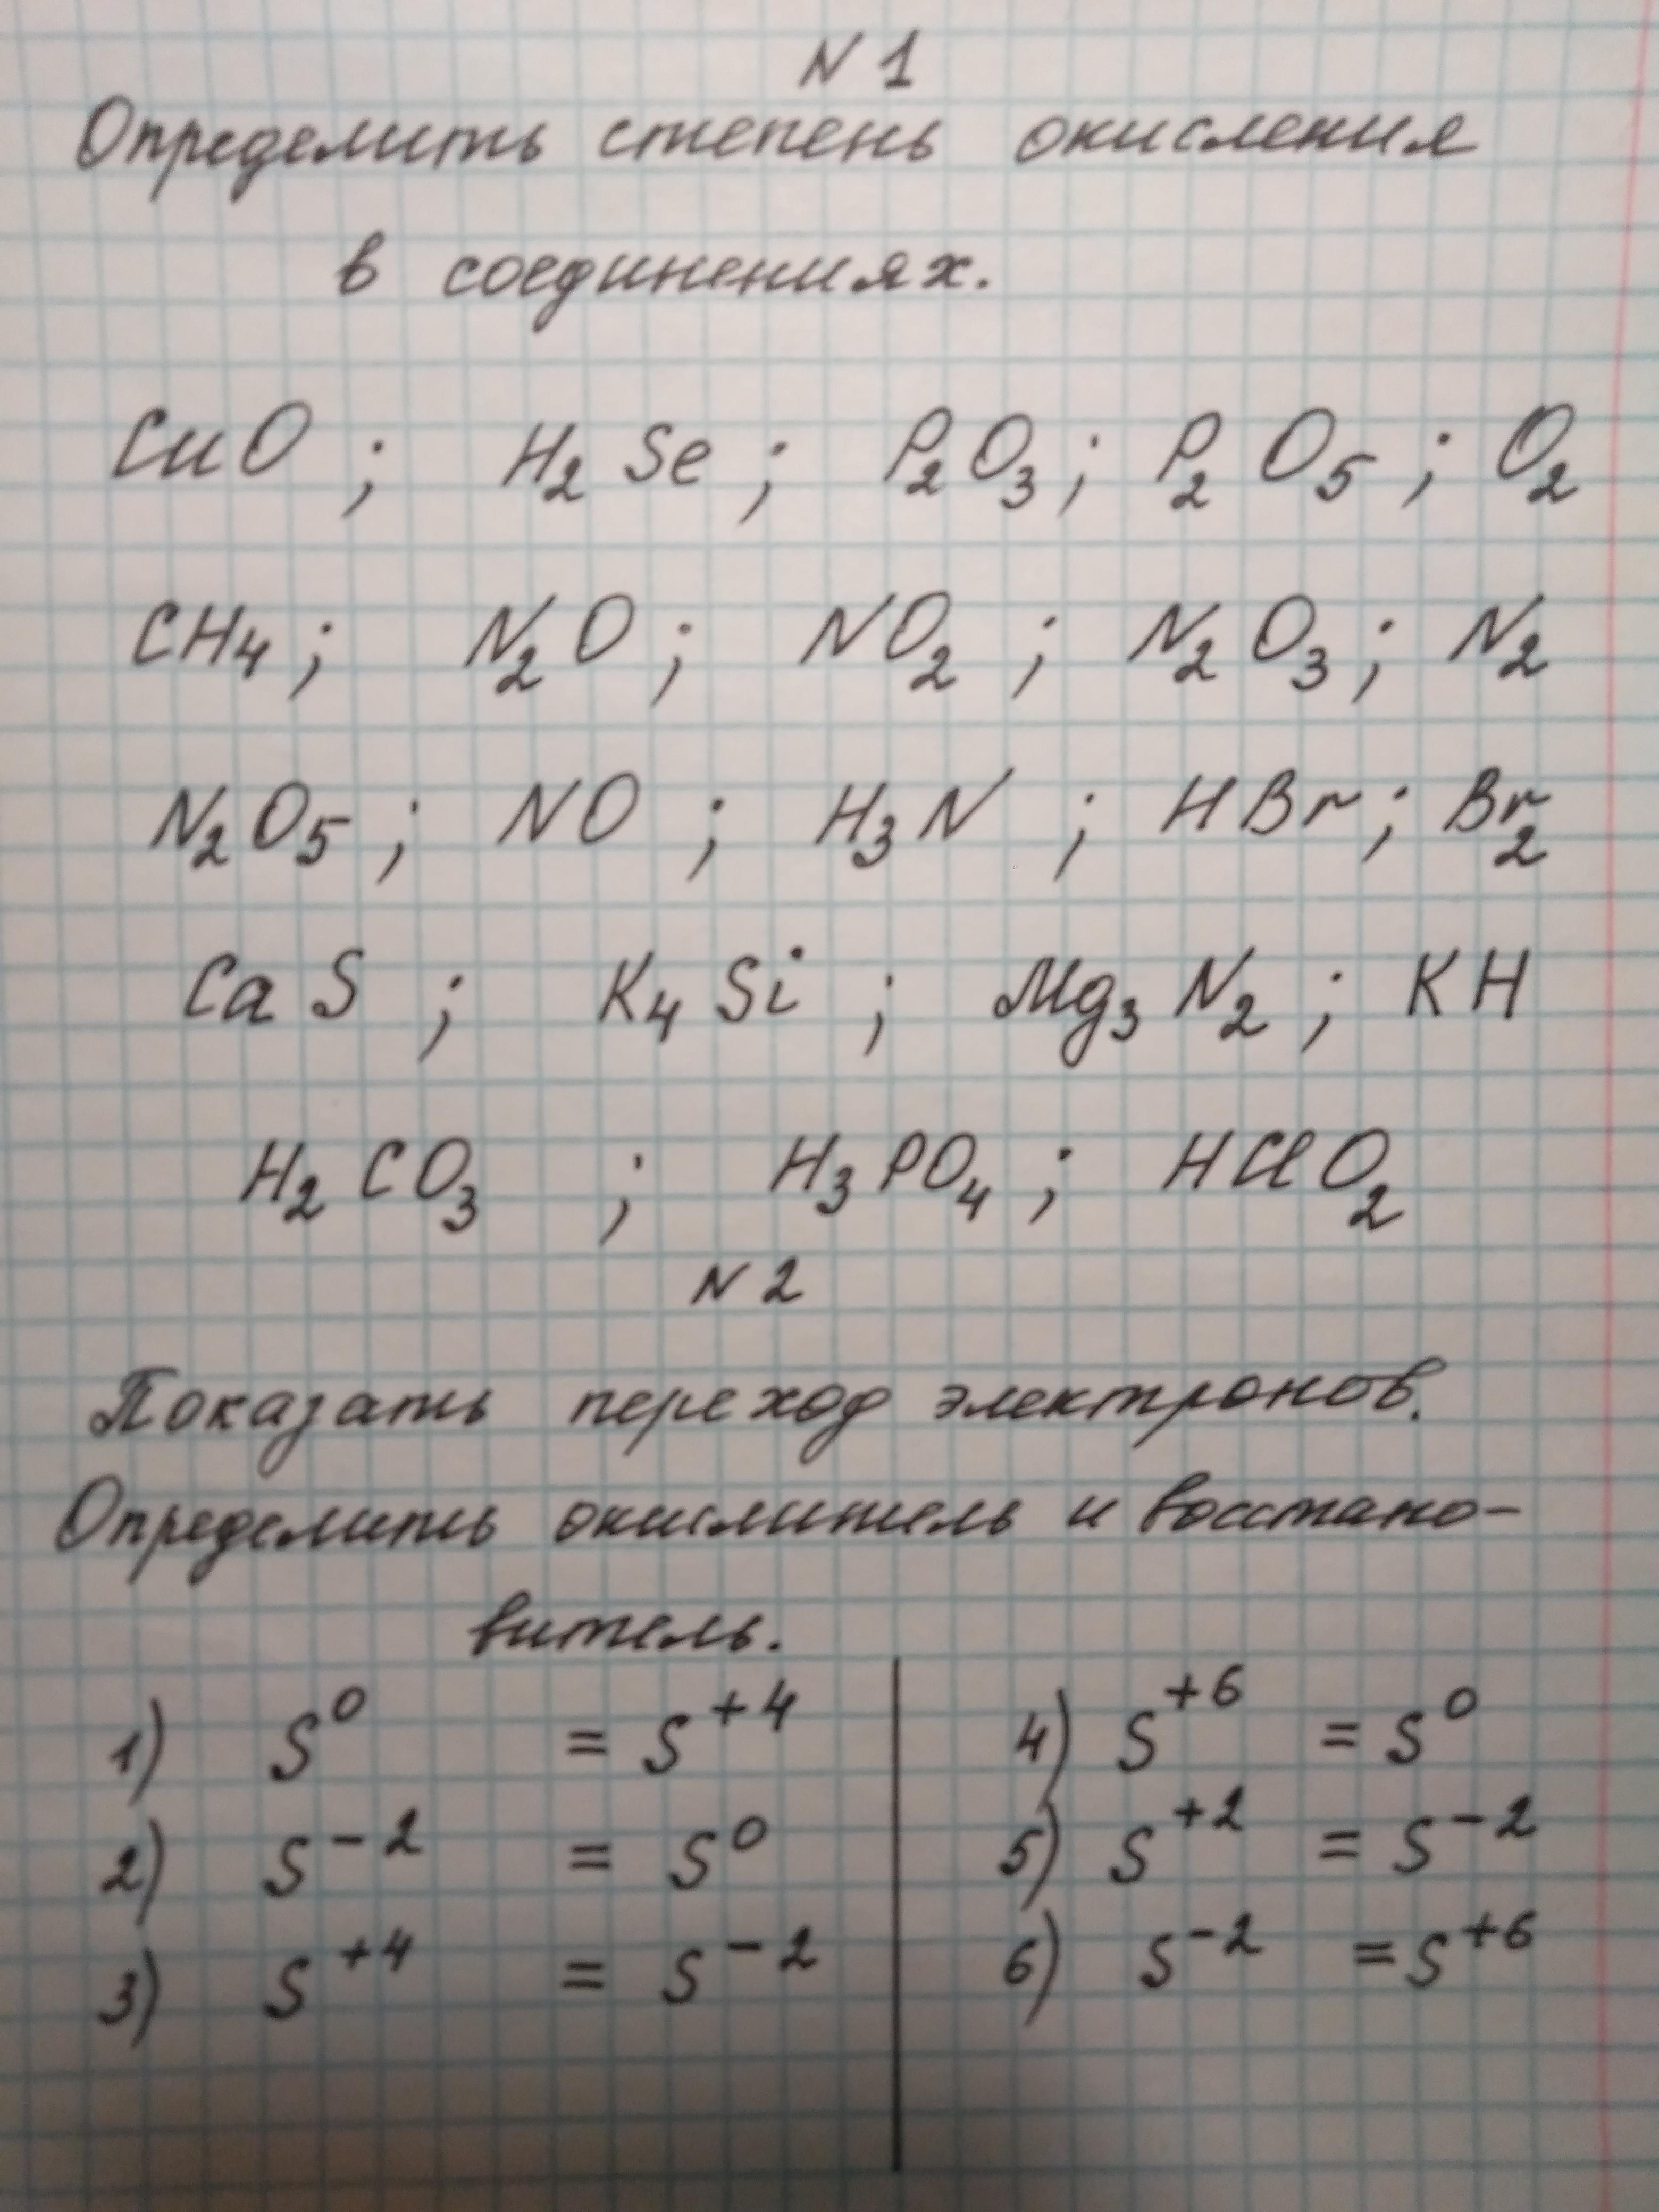 N 1
Определить степень окисления
в соединениях.
CuO ; H₂Se ; P₂O₃ ; P₂O₅ ; O₂
CH₄ ; N₂O ; NO₂ ; N₂O₃ ; N₂
N₂O₅ ; NO ; H₃N ; HBr ; Br₂
CaS ; K₄Si ; Mg₃N₂ ; KH
H₂CO₃ ; H₃PO₄ ; HClO₂
N 2
Показать переход электронов.
Определить окислитель и восстано-
витель.
1) S⁰ = S⁺⁴
2) S⁻² = S⁰
3) S⁺⁴ = S⁻²
4) S⁺⁶ = S⁰
5) S⁺² = S⁻²
6) S⁻² = S⁺⁶